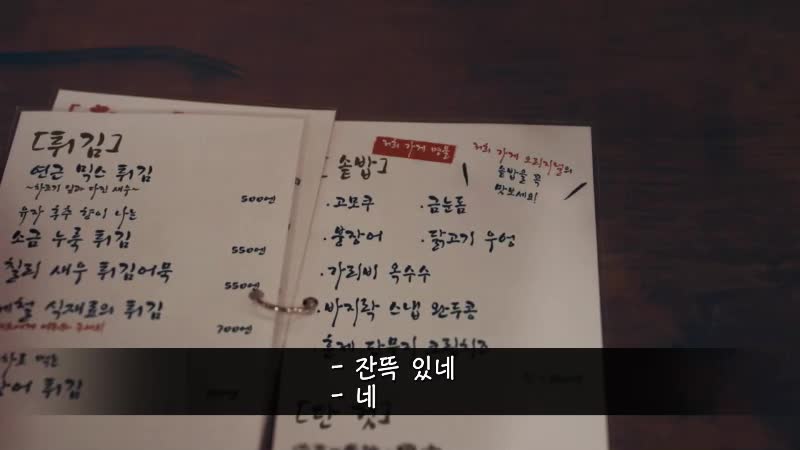 [튀김]
연근 믹스 튀김
~차조기 잎과 다진 새우~
500엔
유자 후추 향이 나는
소금 누룩 튀김
550엔
칠리 새우 튀김어묵
550엔
제철 식재료의 튀김
700엔
튀김
저희 가게 명물
[솥밥]
저희 가게 오리지널의
솥밥을 꼭
맛보세요!
· 고모쿠 · 금눈돔
· 붕장어 · 닭고기 우엉
· 가리비 옥수수
· 바지락 스냅 완두콩
· 훈제 단무지 크림치즈
- 잔뜩 있네
- 네